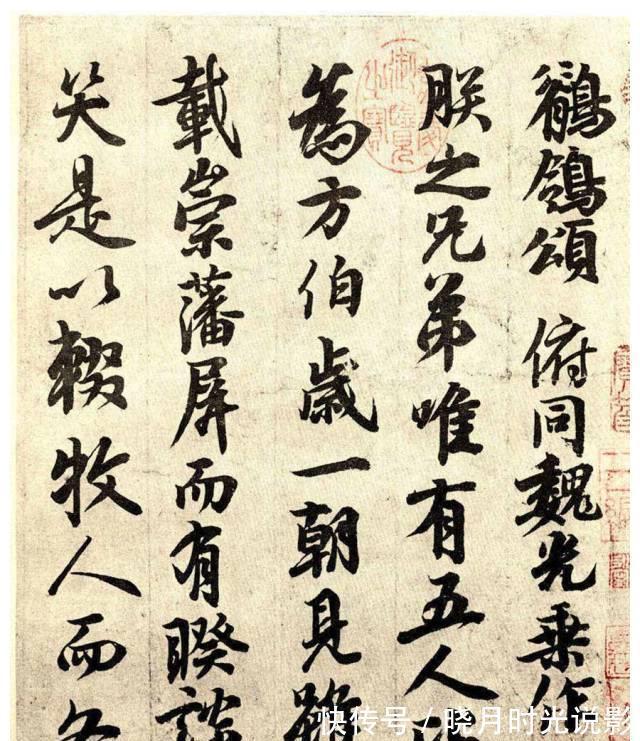 鶺鴒頌 俯同魏光乗作
朕之兄弟唯有五人
為方伯歳一朝見雖
載崇藩屏而有睽談
笑是以輟牧人而各
快传号/晓月时光说影